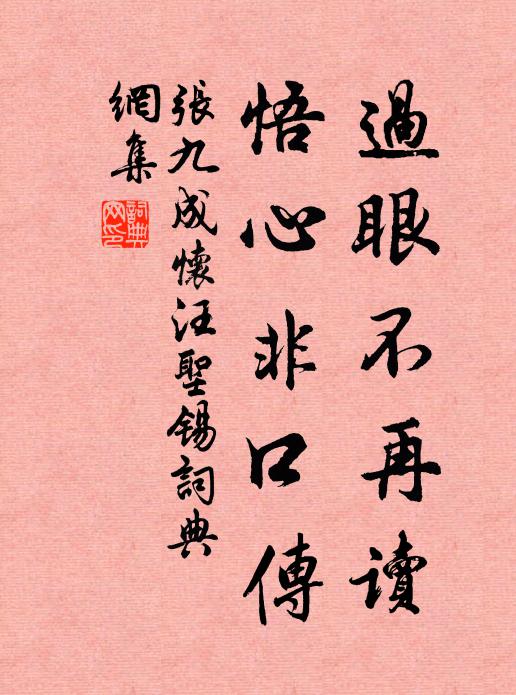 過眼不再读
悟心非口傳
張九成懷汪聖錫詞典
網集
詞典
网印